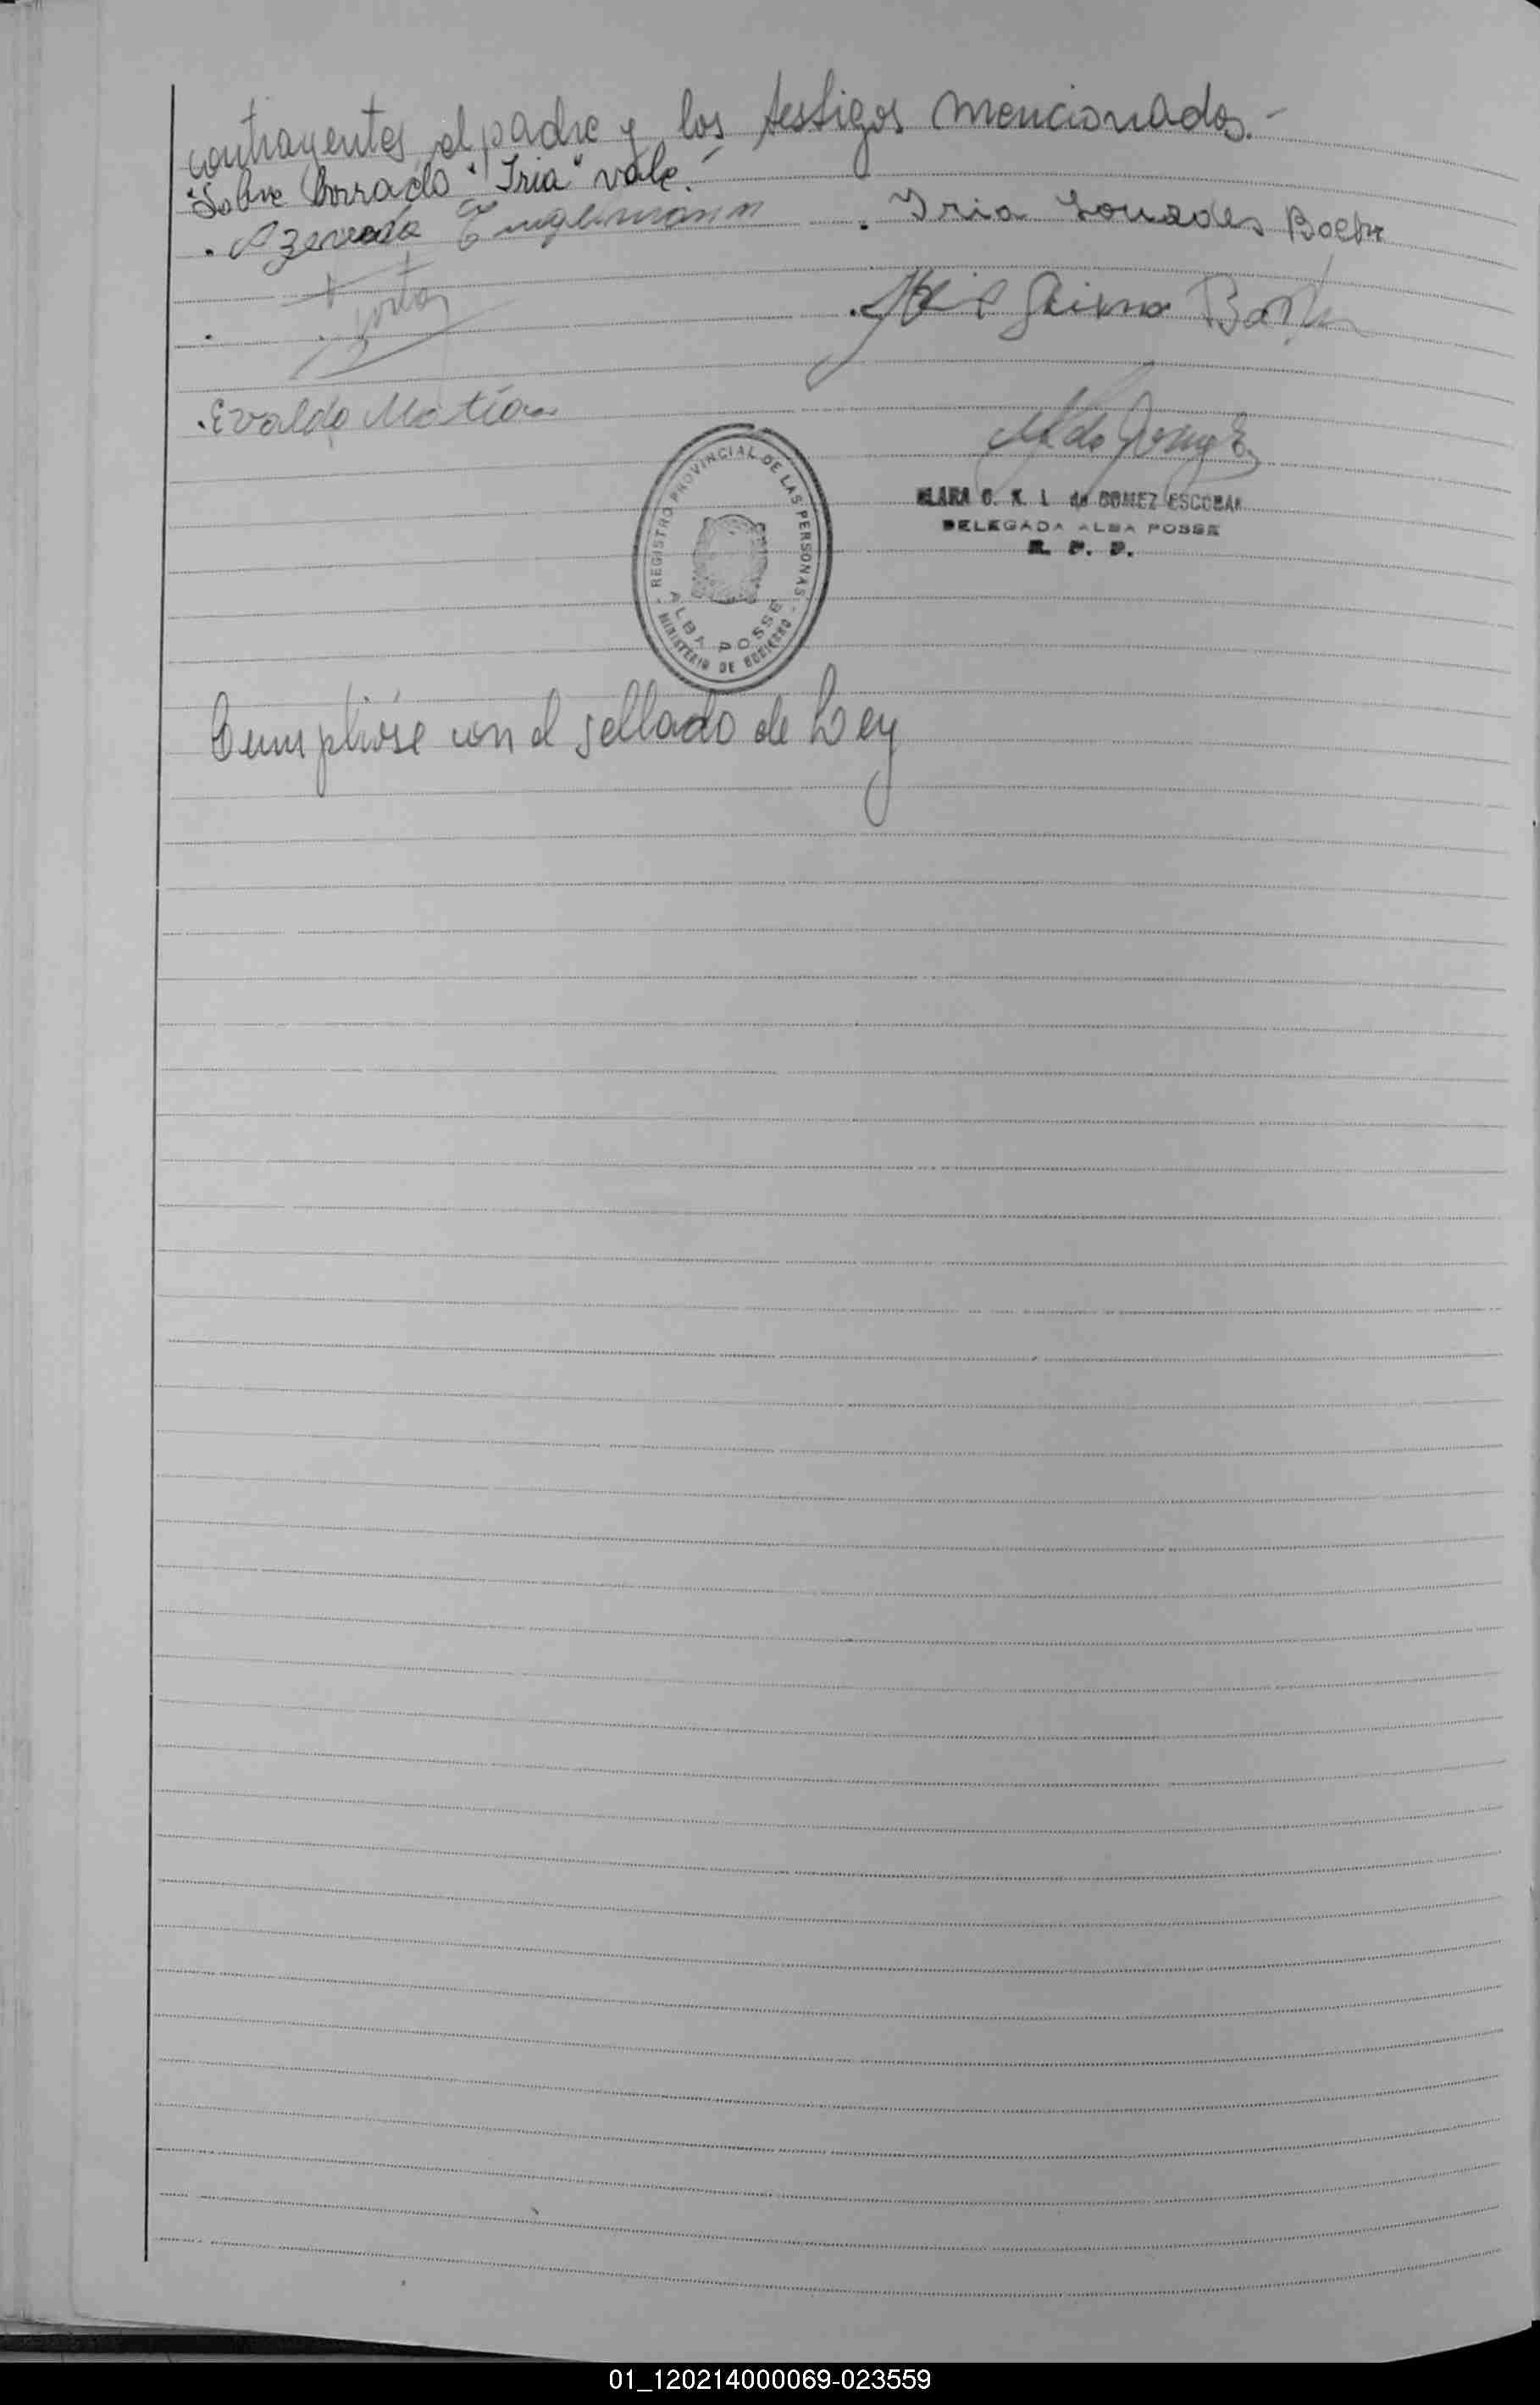 contrayentes, el padre y los testigos mencionados.-
"Sobre borrado" "Iria" vale.-
. Azeredo Engelmann . Iria Lourdes Boehr
.Evaldo Matias
REGISTRO PROVINCIAL DE LAS PERSONAS
ALBA POSSE
MINISTERIO DE GOBIERNO
CLARA G. K. L. de GOMEZ ESCOBAR
DELEGADA ALBA POSSE
R. P. P.
Cumplióse con el sellado de Ley
01_120214000069-023559